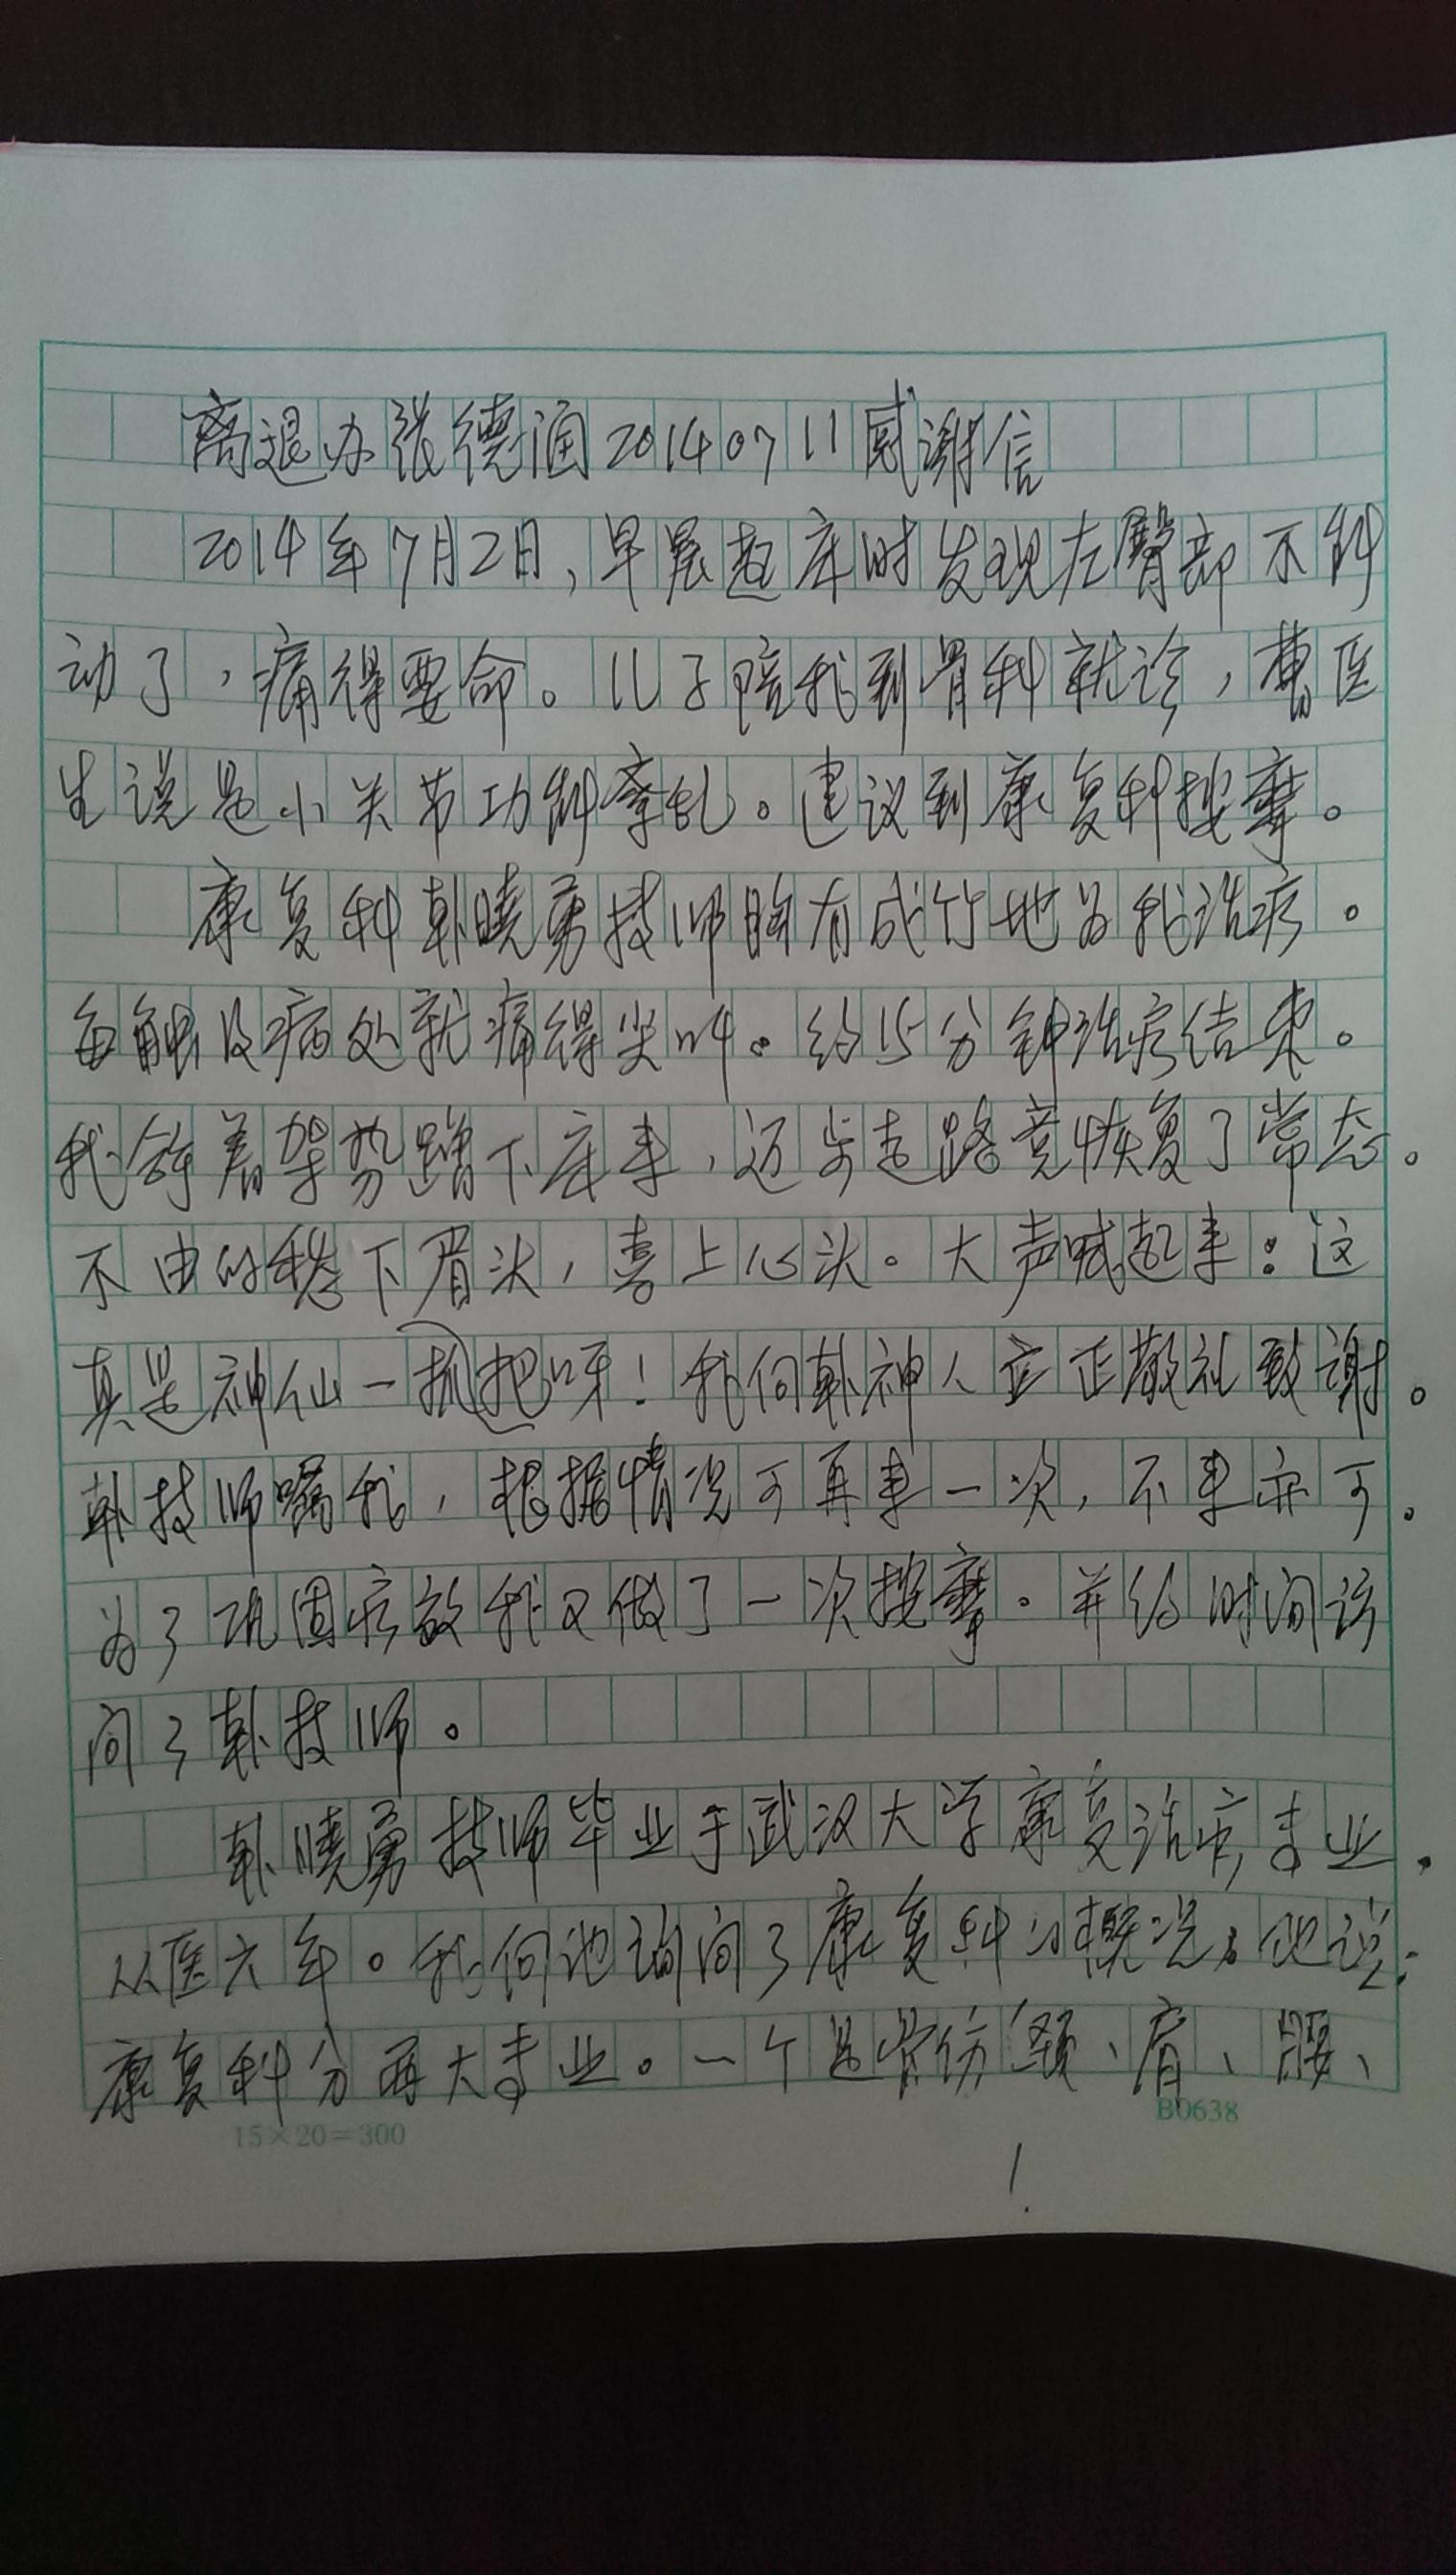 离退办张德涵20140711感谢信
2014年7月2日,早晨起床时发现左臀部不能
动了,痛得要命。儿子陪我到骨科就诊,黄医
生说是小关节功能紊乱。建议到康复科按摩。
康复科韩晓勇技师胸有成竹地为我治疗。
每触及病处就痛得尖叫。约15分钟治疗结束。
我拿着架势蹭下床来,迈步走路竟恢复了常态。
不由的愁下眉头,喜上心头。大声喊起来:这
真是神仙一把抓呀!我向韩神人立正敬礼致谢。
韩技师嘱我,根据情况可再来一次,不来亦可。
为了巩固疗效我又做了一次按摩。并约时间访
问了韩技师。
韩晓勇技师毕业于武汉大学康复治疗专业,
从医六年。我向他询问了康复科的概况。他说:
康复科分两大专业。一个是骨伤颈、肩、腰、
15×20=300
B0638
1.